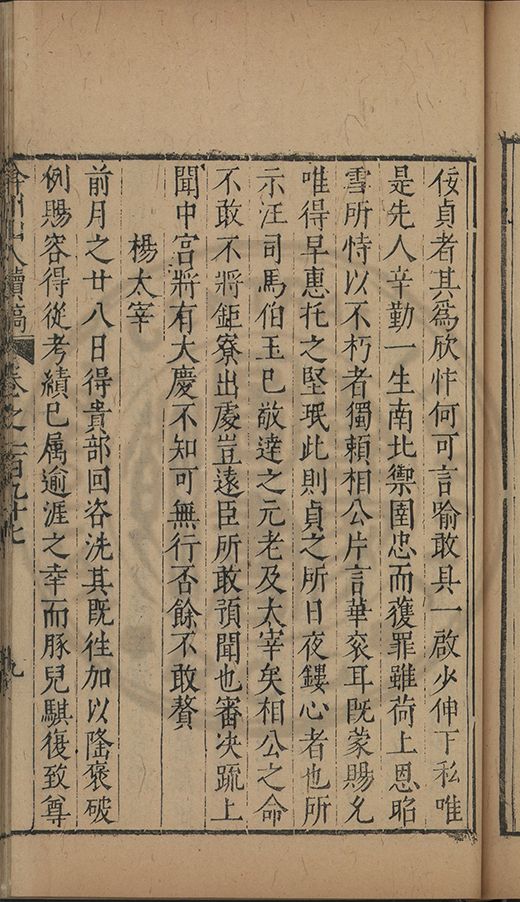 佞貞者其爲欣忭何可言喻敢具一啟少伸下私唯
是先人辛勤一生南北禦圉忠而獲罪雖荷上恩昭
雪所恃以不朽者獨頼相公片言華衮耳既蒙賜允
唯得早惠托之堅珉此則貞之所日夜鏤心者也所
示汪司馬伯玉已敬達之元老及太宰矣相公之命
不敢不將鉅寮出處豈遠臣所敢預聞也審决疏上
聞中宫將有大慶不知可無行否餘不敢贅
楊太宰
前月之廿八日得貴部回咨洗其既徃加以隆褒破
例賜容得從考績巳属逾涯之幸而豚兒騏復致尊
弇州山人續稿
卷之一百九十七
九